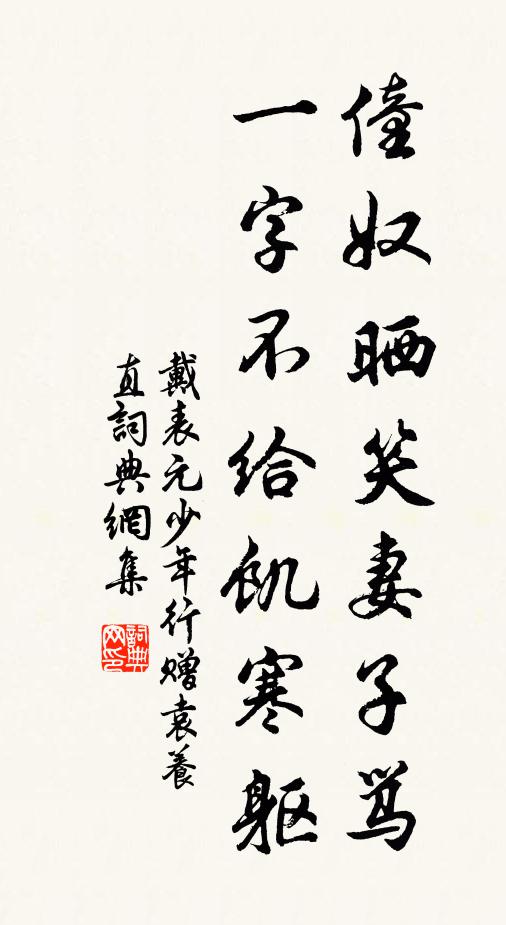 僮奴晒笑妻子骂
一字不给飢寒躯
戴表元少年行赠袁養
直詞典網集
詞典
网印